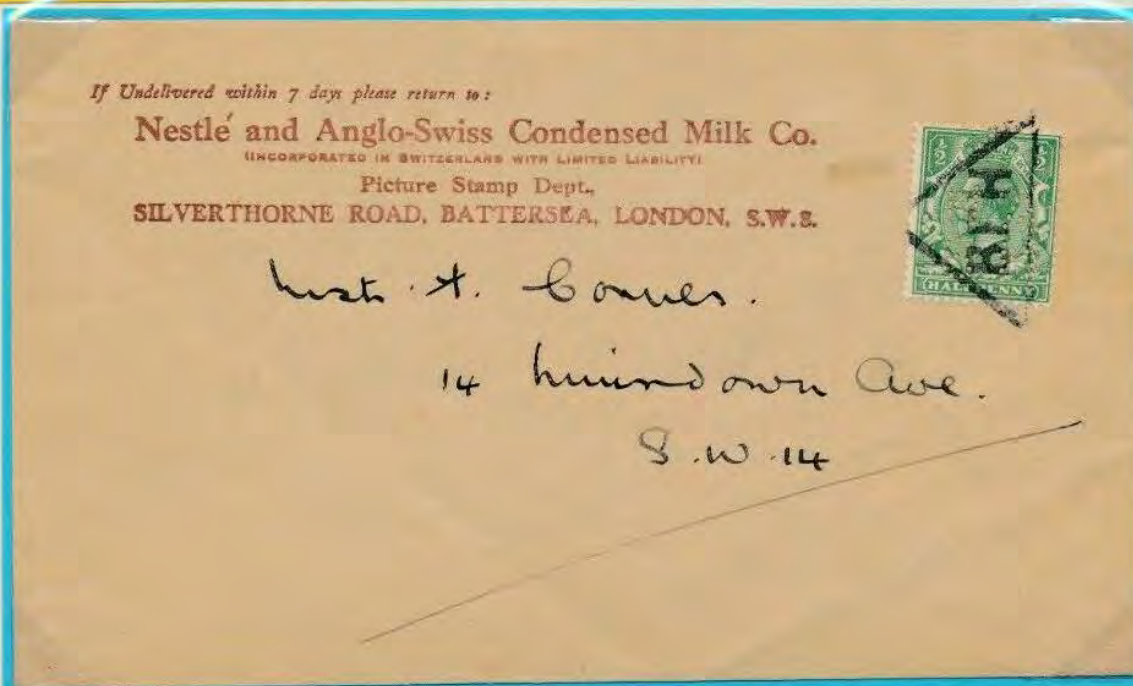 If Undelivered within 7 days please return to:
Nestlé and Anglo-Swiss Condensed Milk Co.
(INCORPORATED IN SWITZERLAND WITH LIMITED LIABILITY)
Picture Stamp Dept.,
SILVERTHORNE ROAD, BATTERSEA, LONDON, S.W.8.
½ ½
HALFPENNY
A.
14 Ave.
S.W.14